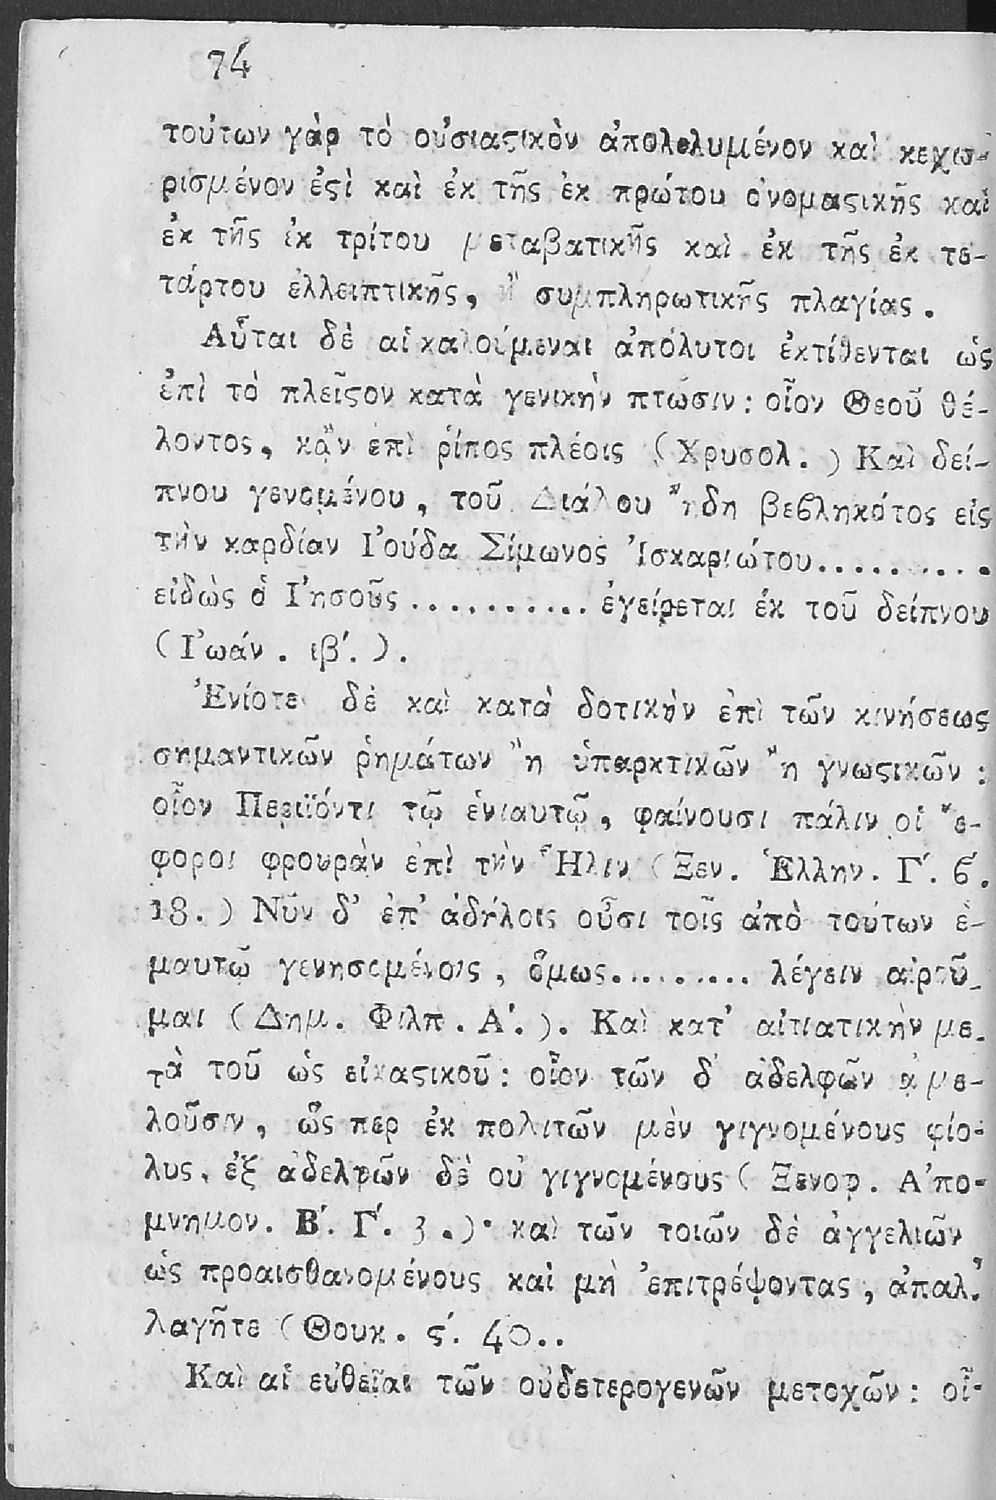 74
τούτων γὰρ τὸ οὐσιαςικὸν ἀπολελυμένον καὶ κεχω-
ρισμένον ἐςὶ καὶ ἐκ τῆς ἐκ πρώτου ὀνομαςικῆς καὶ
ἐκ τῆς ἐκ τρίτου μεταβατικῆς καὶ ἐκ τῆς ἐκ τε-
τάρτου ἐλλειπτικῆς, ἢ συμπληρωτικῆς πλαγίας.
Αὗται δὲ αἱ καλούμεναι ἀπόλυτοι ἐκτίθενται ὡς
ἐπὶ τὸ πλεῖςον κατὰ γενικὴν πτῶσιν: οἷον Θεοῦ θέ-
λοντος, κᾂν ἐπὶ ῥίπος πλέοις (Χρυσολ.) Καὶ δεί-
πνου γενομένου, τοῦ Διάλου ἤδη βεβληκότος εἰς
τὴν καρδίαν Ἰούδα Σίμωνος Ἰσκαριώτου..........
εἰδὼς ὁ Ἰησοῦς ........... ἐγείρεται ἐκ τοῦ δείπνου
(Ἰωάν. ιβ΄.).
Ἐνίοτε δὲ καὶ κατὰ δοτικὴν ἐπὶ τῶν κινήσεως
σημαντικῶν ῥημάτων ἢ ὑπαρκτικῶν ἢ γνωςικῶν:
οἷον Περιϊόντι τῷ ἐνιαυτῷ, φαίνουσι πάλιν οἱ ἔ-
φοροι φρουρὰν ἐπὶ τὴν Ἥλιν (Ξεν. Ἑλλην. Γ΄. β΄.
18.) Νῦν δ' ἐπ' ἀδήλοις οὖσι τοῖς ἀπὸ τούτων ἐ-
μαυτῷ γενησομένοις, ὅμως......... λέγειν αἱροῦ-
μαι (Δημ. Φιλπ. Α΄.). Καὶ κατ' αἰτιατικὴν με-
τὰ τοῦ ὡς εἰκαςικοῦ: οἷον τῶν δ' ἀδελφῶν ἀμε-
λοῦσιν, ὥς περ ἐκ πολιτῶν μὲν γιγνομένους φίο-
λυς, ἐξ ἀδελφῶν δὲ οὐ γιγνομένους (Ξενοφ. Ἀπο-
μνημον. Β΄. Γ΄. 3.)· καὶ τῶν τοιῶν δὲ ἀγγελιῶν
ὡς προαισθανομένους καὶ μὴ ἐπιτρέψοντας, ἀπαλ-
λαγῆτε (Θουκ. ς΄. 40..
Καὶ αἱ εὐθεῖαι τῶν οὐδετερογενῶν μετοχῶν: οἷ-